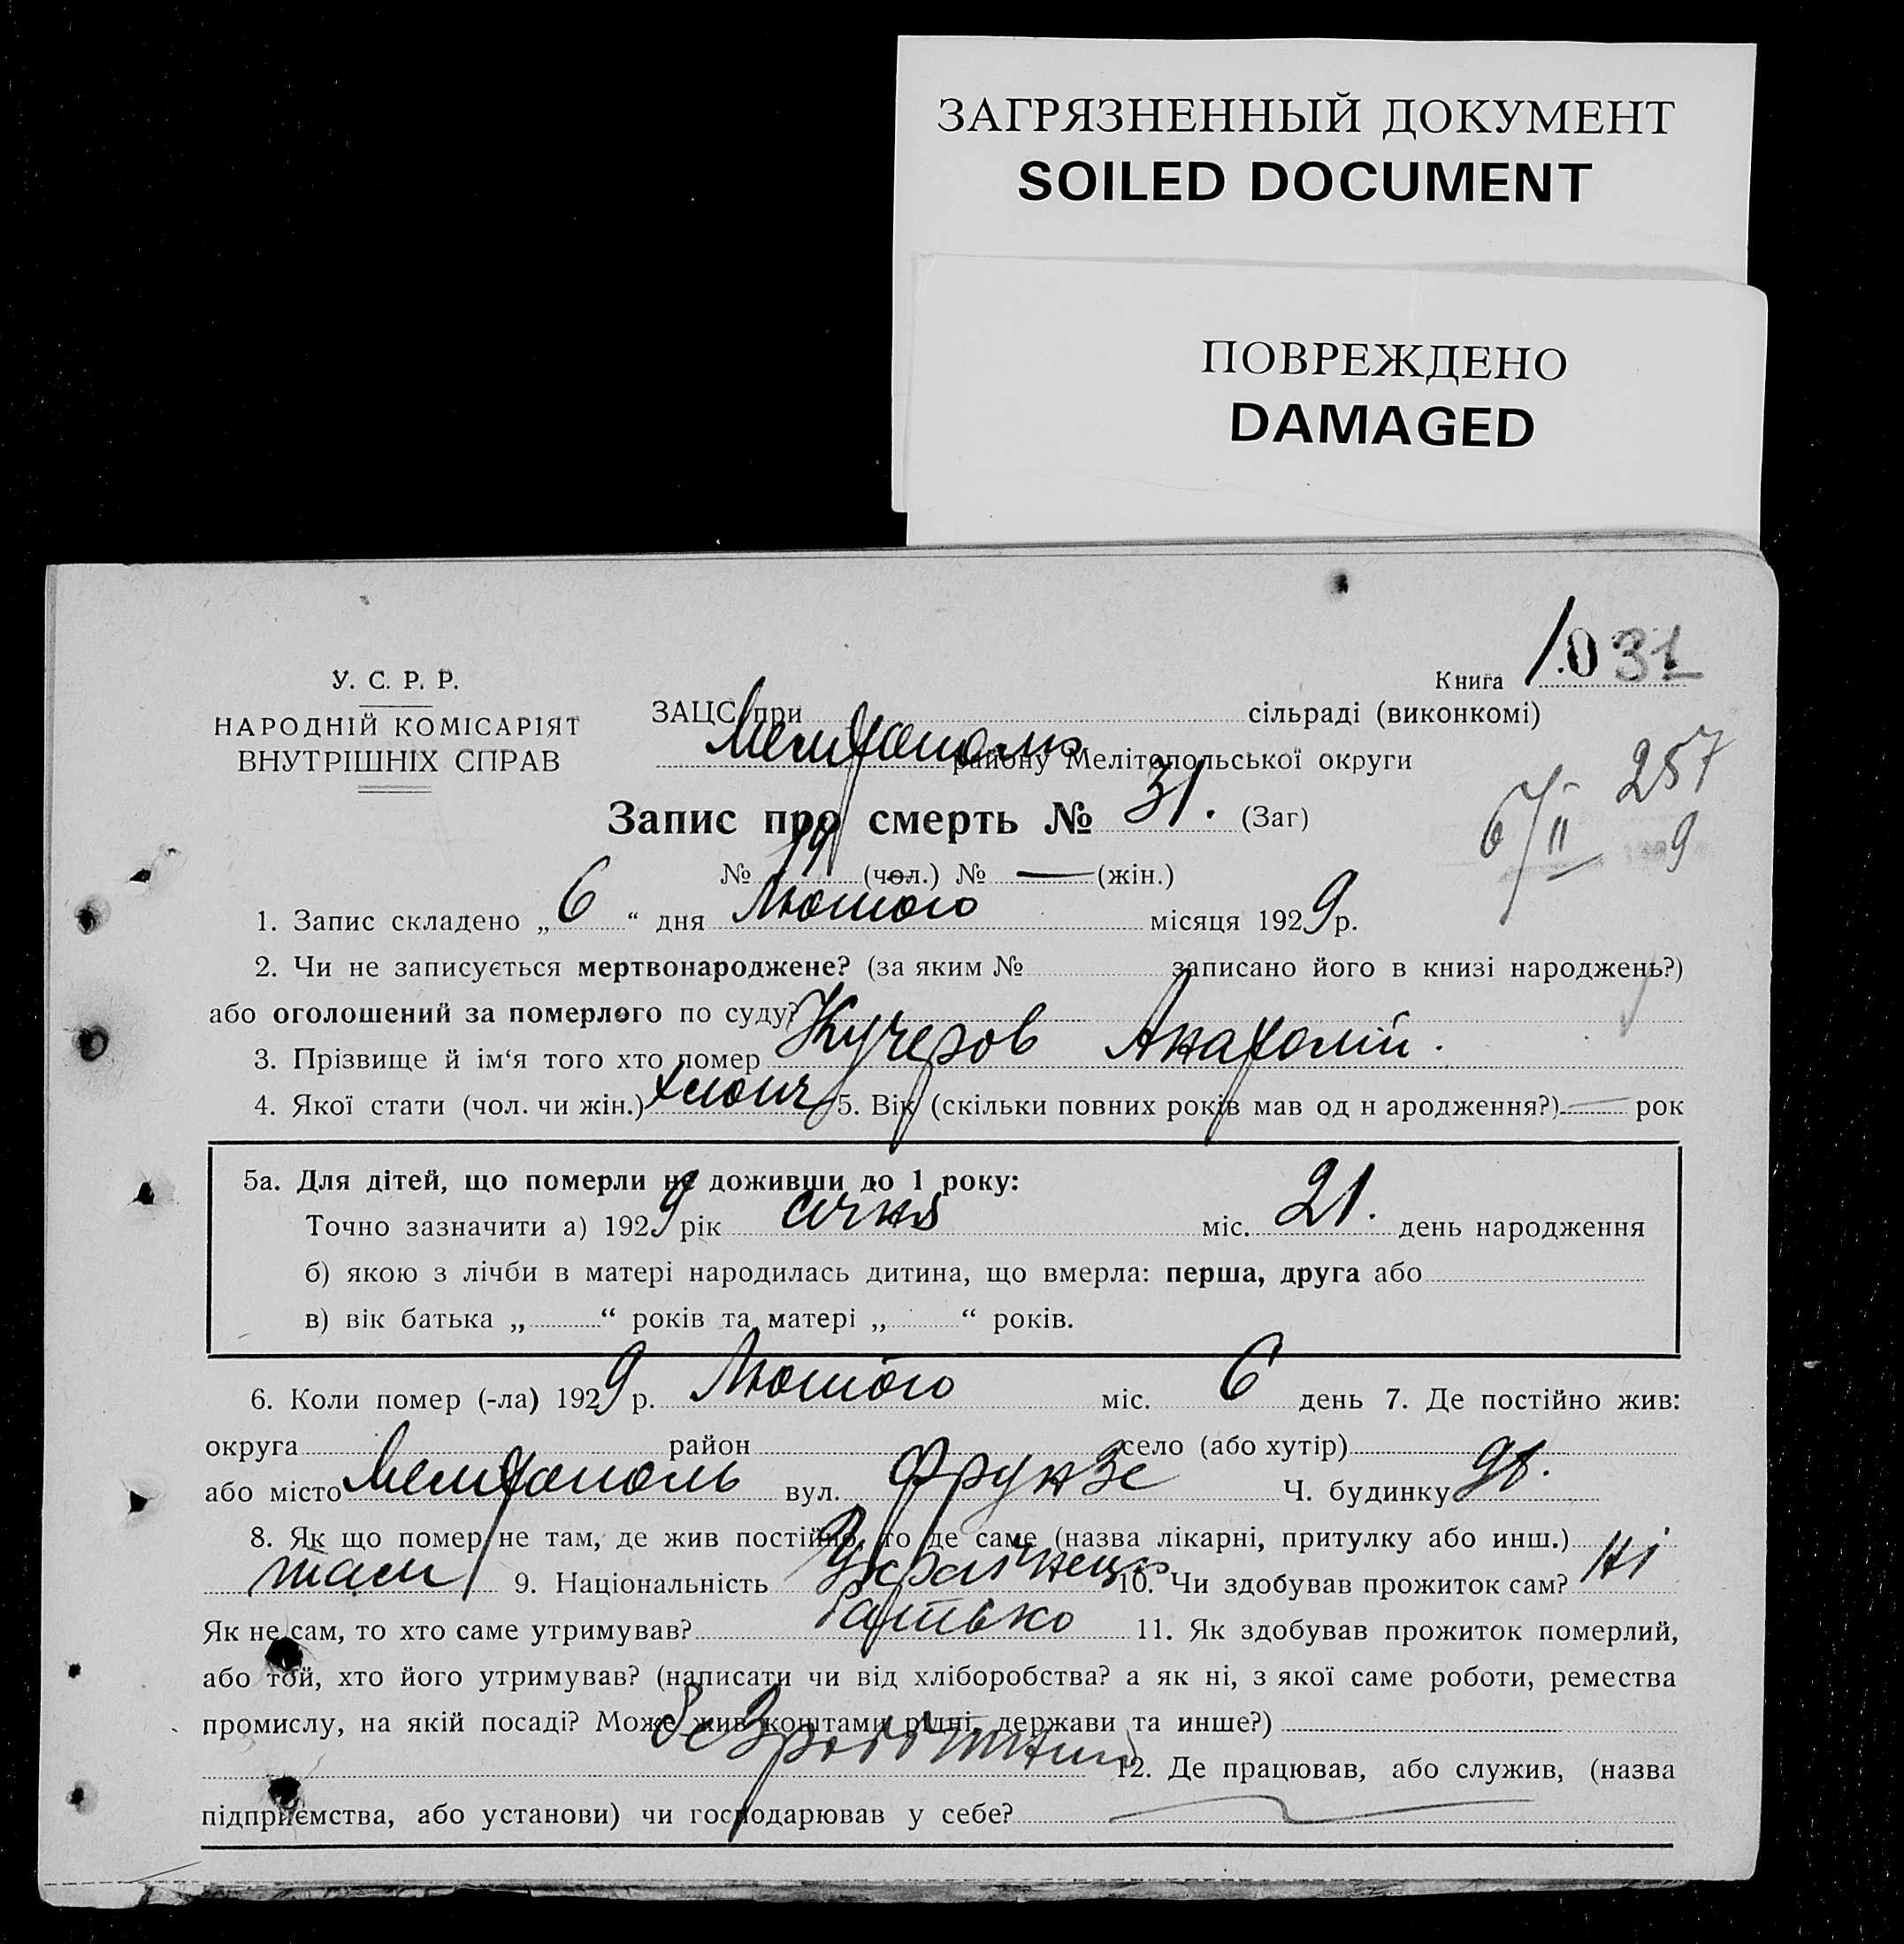 ЗАГРЯЗНЕННЫЙ ДОКУМЕНТ
SOILED DOCUMENT
ПОВРЕЖДЕНО
DAMAGED
У. С. Р. Р.
НАРОДНІЙ КОМІСАРІЯТ
ВНУТРІШНІХ СПРАВ
Книга 1.0 31
ЗАЦС при сільраді (виконкомі)
Мелітополь району Мелітопольської округи
257
6/II 9
Запис про смерть № 31. (Заг)
№ 19 (чол.) № — (жін.)
1. Запис складено „ 6 “ дня Лютого місяця 1929 р.
2. Чи не записується мертвонароджене? (за яким № записано його в книзі народжень?)
або оголошений за померлого по суду?
3. Прізвище й ім‘я того хто помер Кучеров Анатолій.
4. Якої стати (чол. чи жін.) хлопч 5. Вік (скільки повних років мав од н ародження?) — рок
5а. Для дітей, що померли не доживши до 1 року:
Точно зазначити а) 1929 рік січня міс. 21. день народження
б) якою з лічби в матері народилась дитина, що вмерла: перша, друга або
в) вік батька „ “ років та матері „ “ років.
6. Коли помер (-ла) 1929 р. Лютого міс. 6 день 7. Де постійно жив:
округа район село (або хутір)
або місто Мелітополь вул. Фрунзе Ч. будинку
8. Як що помер не там, де жив постійно, то де саме (назва лікарні, притулку або инш.)
там 9. Національність Українець 10. Чи здобував прожиток сам? Ні
Як не сам, то хто саме утримував? батько 11. Як здобував прожиток померлий,
або той, хто його утримував? (написати чи від хліборобства? а як ні, з якої саме роботи, ремества
промислу, на якій посаді? Може жив коштами рідні, держави та инше?)
безробітний 12. Де працював, або служив, (назва
підприємства, або установи) чи господарював у себе? —